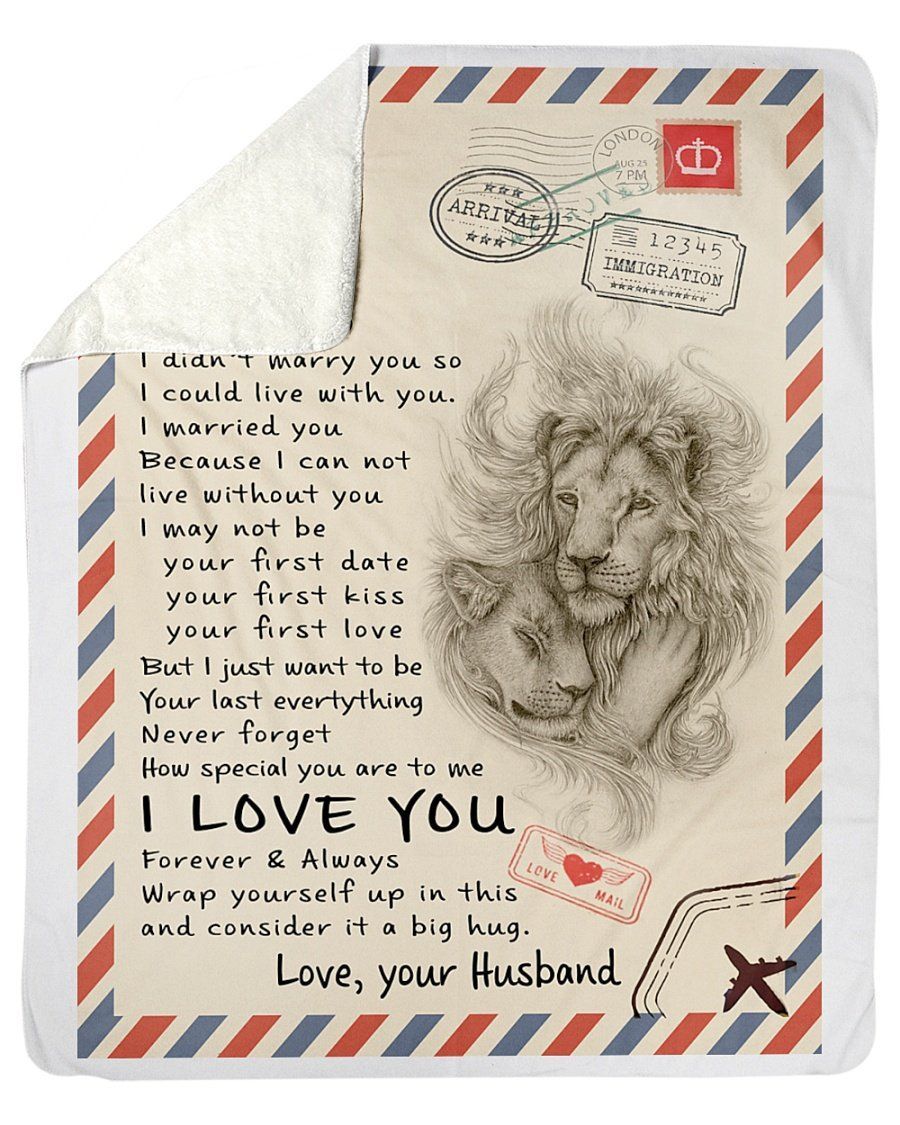 LONDON
AUG 25
7 PM
ARRIVAL
12345
IMMIGRATION
I didn't marry you so
I could live with you.
I married you
Because I can not
live without you
I may not be
your first date
your first kiss
your first love
But I just want to be
Your last evertything
Never forget
How special you are to me
I LOVE YOU
Forever & Always
Wrap yourself up in this
and consider it a big hug.
Love, your Husband
LOVE
MAIL